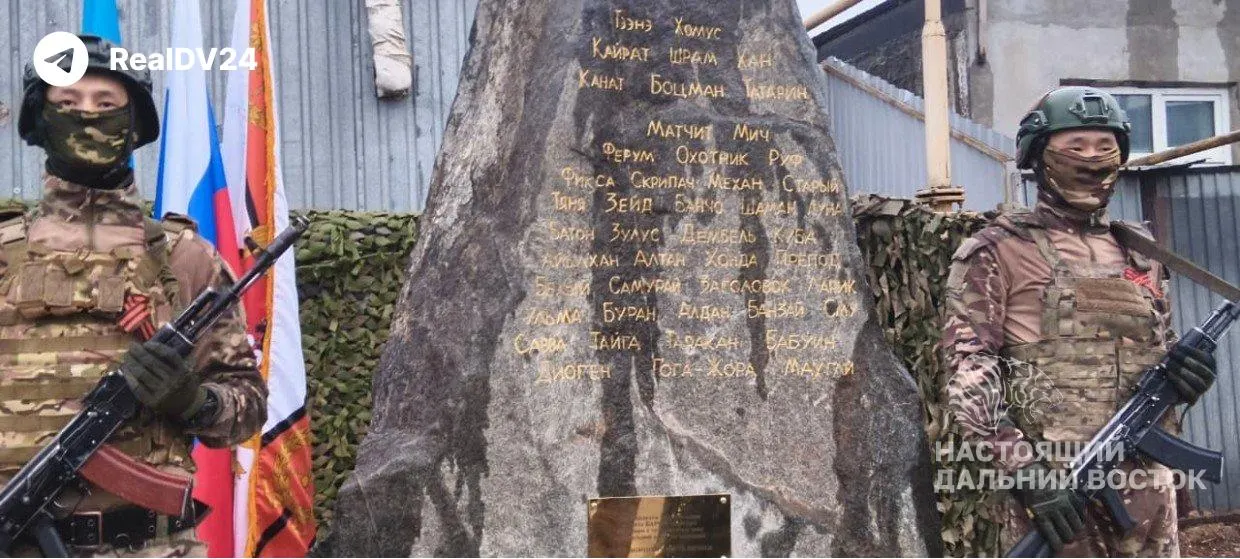 RealDV24
Тээнэ Хомус
Кайрат Шрам Хан
Канат Боцман Татарин
Матчит Мич
Ферум Охотник Руф
Фикса Скрипач Механ Старый
Тяня Зейд Банчо Шаман Луна
Батон Зулус Дембель Куба
Алтан Хонда Препод
Самурай Заголовок Ларик
Ульма Буран Алдан Банзай Сэлу
Савва Тайга Таракан Бабуин
Диоген Гога-Жора Маугли
НАСТОЯЩИЙ
ДАЛЬНИЙ ВОСТОК